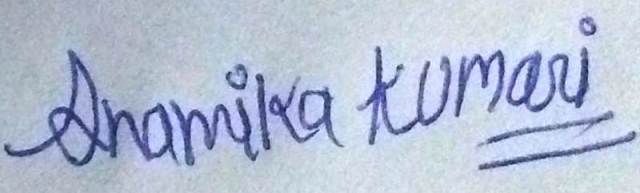 Anamika Kumari